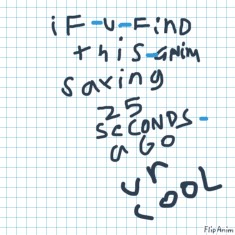 iF-u-FiND
this-ANiM
saxing
25
SeCONDS-
aGO
ur
COOL
FlipAnim